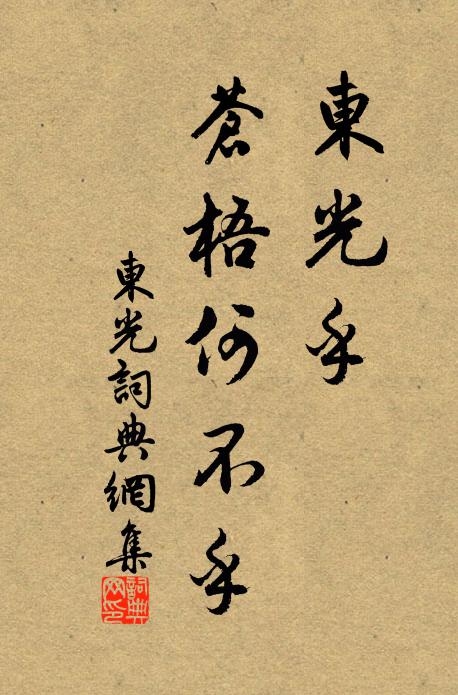 東光乎
蒼梧何不乎
東光詞典網集
詞典
网印